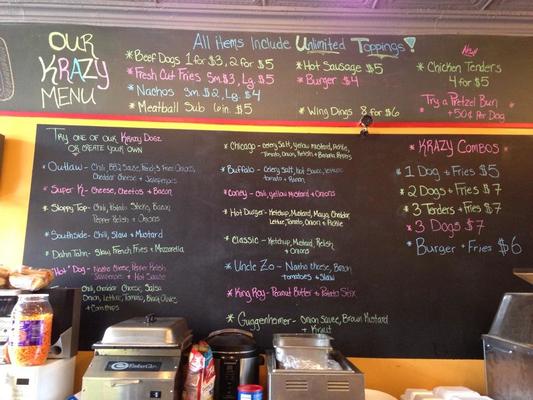 OUR
KRAZY
MENU
All items Include Unlimited Toppings!
*Beef Dogs 1 for $3, 2 for $5
*Fresh Cut Fries Sm.$3, Lg. $5
*Nachos Sm. $2, Lg. $4
*Meatball Sub 6 in. $5
*Hot Sausage $5
*Burger $4
*Wing Dings 8 for $6
New!
*Chicken Tenders
4 for $5
Try a Pretzel Bun
+50¢ Per Dog
Try one of our Krazy Dogz
or create your own
*Outlaw- Chili, BBQ Sauce, Fried Onions,
Cheddar Cheese + Jalapenos
*Super K- Cheese, Cheetos + Bacon
*Sloppy Top- Chili, Potato Stix, Bacon,
Pepper Relish + Onions
*Southside- Chili, Slaw + Mustard
*Dahn Tahn- Slaw, French Fries + Mozzarella
"Hot" Dog- Nacho Cheese, Pepper Relish
Jalapenos + Hot Sauce
Chili, Cheddar Cheese, Salsa
Onion, Lettuce, Tomato, Black Olives
+ Corn Chips
*Chicago- Celery Salt, Yellow Mustard, Pickle,
Tomato, Onion, Relish + Banana Peppers
*Buffalo- Celery Salt, Hot Sauce,
Tomato + Bacon
*Coney- Chili, Yellow Mustard + Onions
*Hot Durger- Ketchup, Mustard, Mayo, Cheddar
Lettuce, Tomato, Onion + Pickle
*Classic- Ketchup, Mustard, Relish
+ Onions
*Uncle Zo- Nacho Cheese, Bacon
Tomatoes + Slaw
*King Ray- Peanut Butter + Potato Stix
*Guggenheimer- Onion Sauce, Brown Mustard
+ Kraut
*KRAZY COMBOS
*1 Dog + Fries $5
*2 Dogs + Fries $7
*3 Tenders + Fries $7
*3 Dogs $7
*Burger + Fries $6